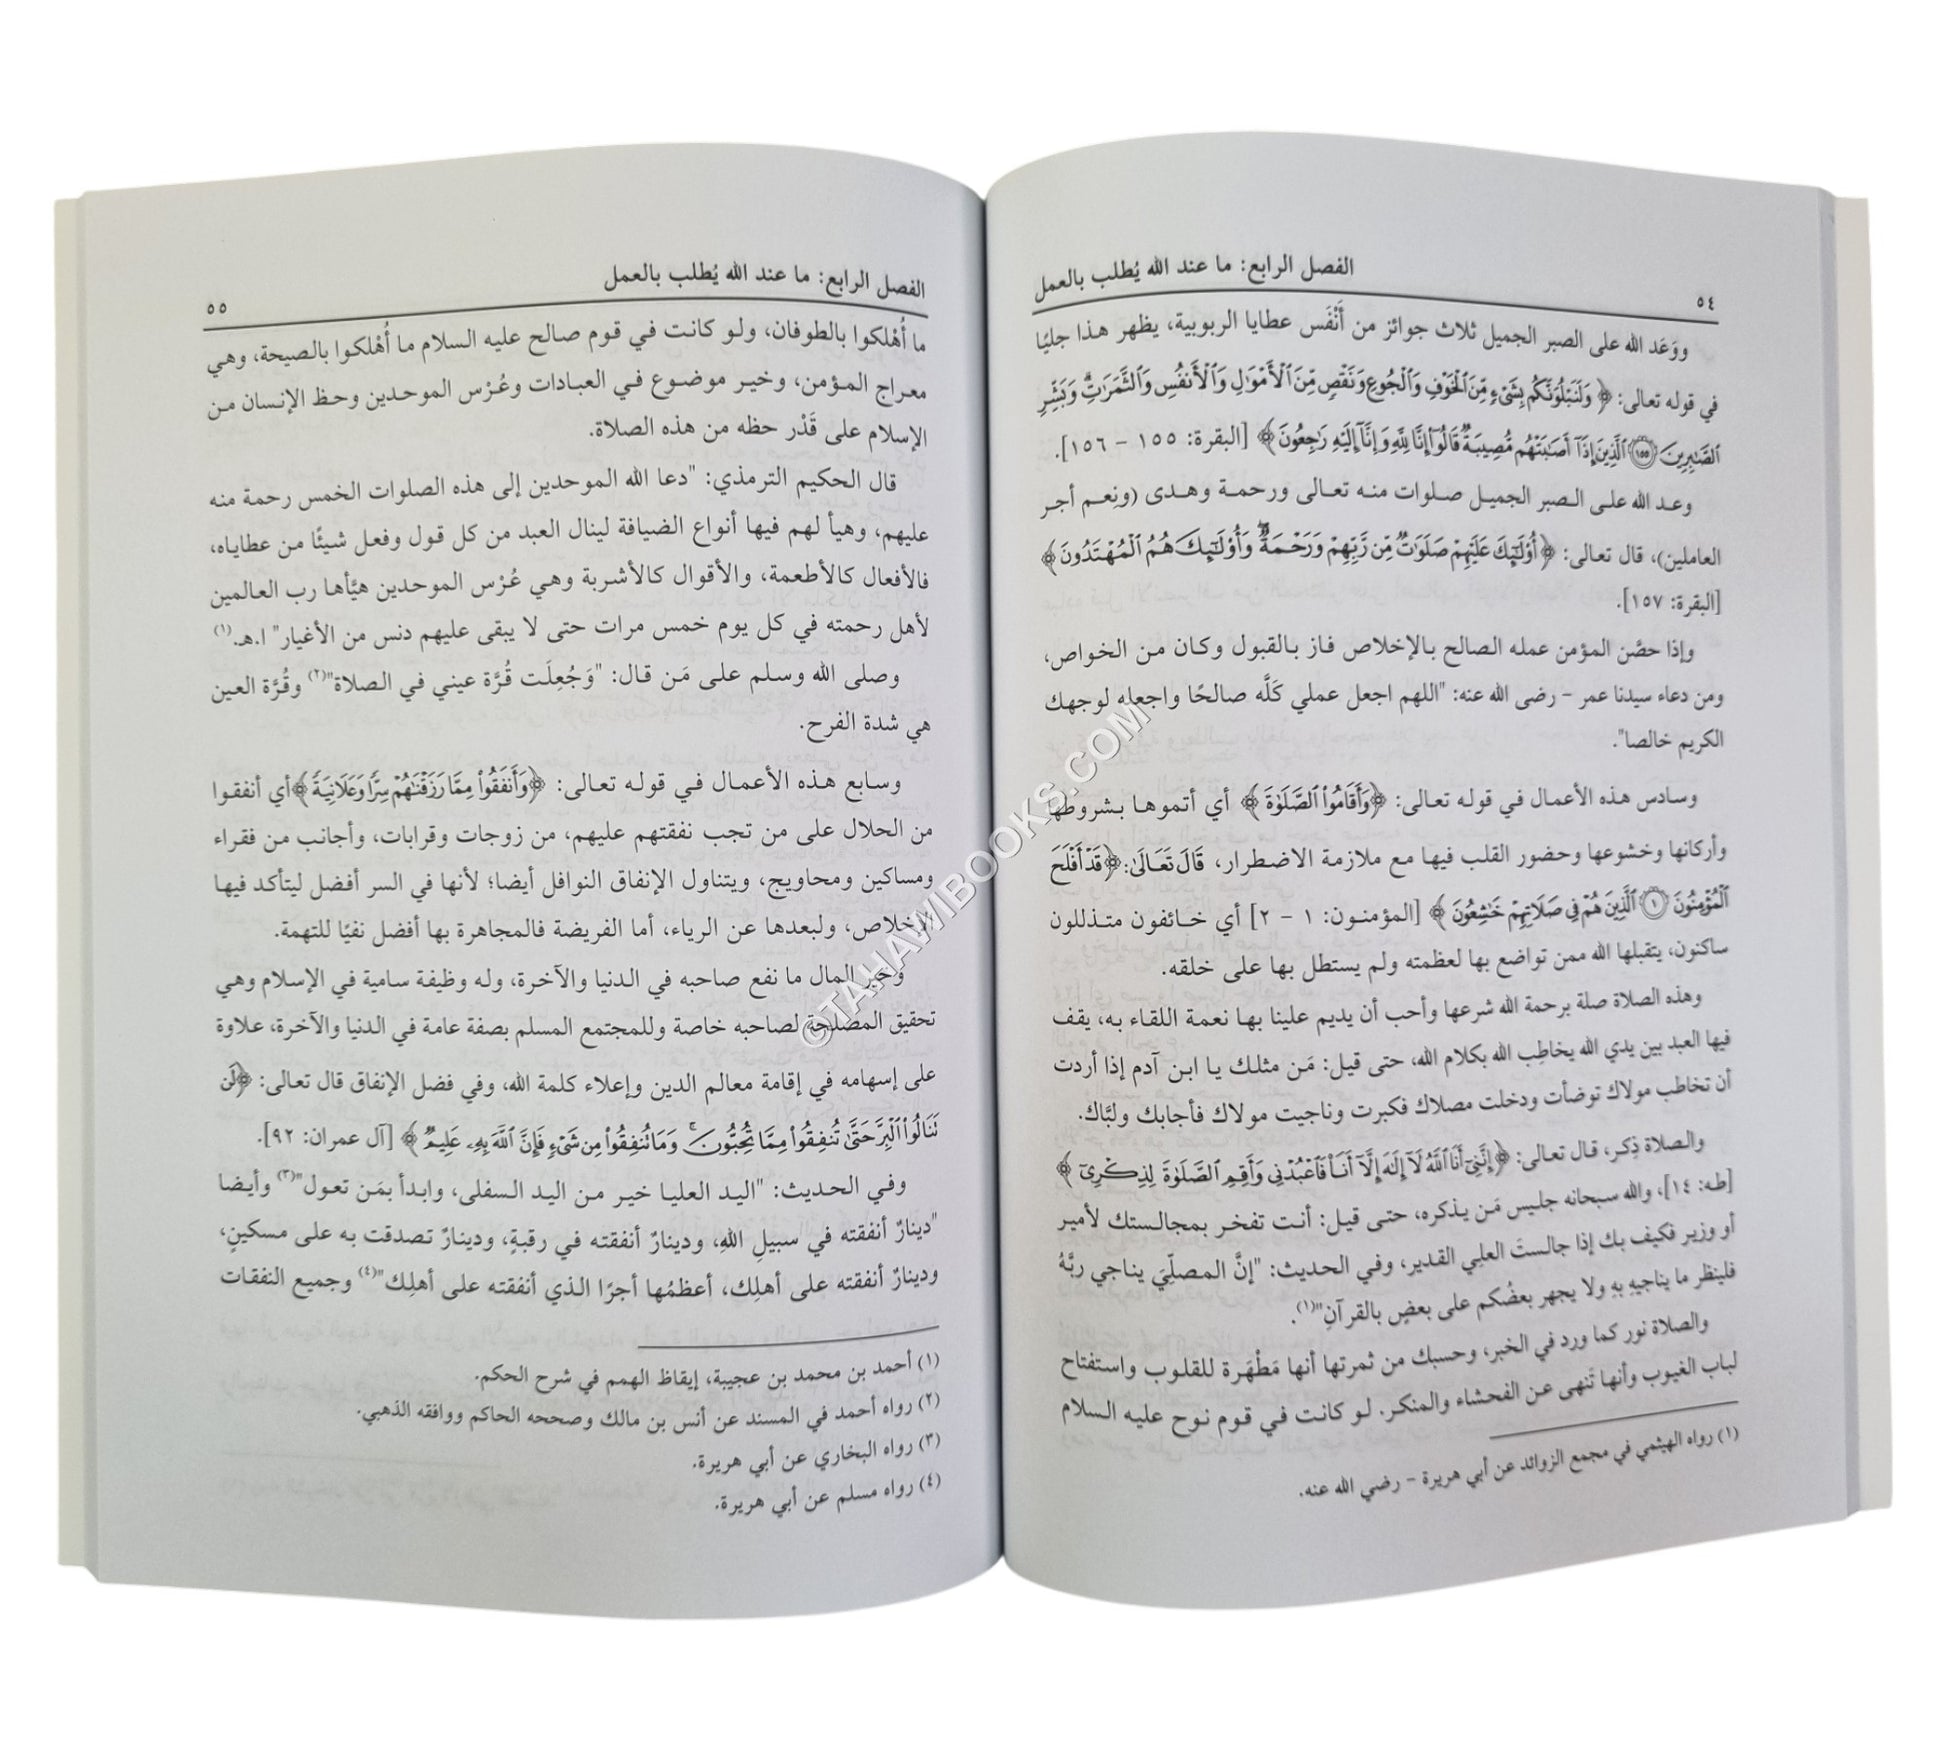 ٥٤
الفصل الرابع: ما عند الله يُطلب بالعمل
ووَعَد الله على الصبر الجميل ثلاث جوائز من أَنْفَس عطايا الربوبية، يظهر هذا جليًا
في قوله تعالى: ﴿وَلَنَبْلُوَنَّكُم بِشَىْءٍ مِّنَ ٱلْخَوْفِ وَٱلْجُوعِ وَنَقْصٍ مِّنَ ٱلْأَمْوَٰلِ وَٱلْأَنفُسِ وَٱلثَّمَرَٰتِ ۗ وَبَشِّرِ
ٱلصَّٰبِرِينَ ١٥٥ ٱلَّذِينَ إِذَآ أَصَٰبَتْهُم مُّصِيبَةٌ قَالُوٓا۟ إِنَّا لِلَّهِ وَإِنَّآ إِلَيْهِ رَٰجِعُونَ﴾ [البقرة: ١٥٥ - ١٥٦].
وعد الله على الصبر الجميل صلوات منه تعالى ورحمة وهدى (ونِعم أجر
العاملين)، قال تعالى: ﴿أُو۟لَٰٓئِكَ عَلَيْهِمْ صَلَوَٰتٌ مِّن رَّبِّهِمْ وَرَحْمَةٌ ۖ وَأُو۟لَٰٓئِكَ هُمُ ٱلْمُهْتَدُونَ﴾
[البقرة: ١٥٧].
وإذا حصَّن المؤمن عمله الصالح بالإخلاص فاز بالقبول وكان من الخواص،
ومن دعاء سيدنا عمر - رضى الله عنه: "اللهم اجعل عملي كَلَّه صالحًا واجعله لوجهك
الكريم خالصا".
وسادس هذه الأعمال في قوله تعالى: ﴿وَأَقَامُوا۟ ٱلصَّلَوٰةَ﴾ أي أتموها بشروطها
وأركانها وخشوعها وحضور القلب فيها مع ملازمة الاضطرار، قَالَ تَعَالَىٰ: ﴿قَدْ أَفْلَحَ
ٱلْمُؤْمِنُونَ ١ ٱلَّذِينَ هُمْ فِى صَلَاتِهِمْ خَٰشِعُونَ﴾ [المؤمنون: ١ - ٢] أي خائفون متذللون
ساكنون، يتقبلها الله ممن تواضع بها لعظمته ولم يستطل بها على خلقه.
وهذه الصلاة صلة برحمة الله شرعها وأحب أن يديم علينا بها نعمة اللقاء به، يقف
فيها العبد بين يدي الله يخاطِب الله بكلام الله، حتى قيل: مَن مثلك يا ابن آدم إذا أردت
أن تخاطب مولاك توضأت ودخلت مصلاك فكبرت وناجيت مولاك فأجابك ولبَّاك.
والصلاة ذِكر، قال تعالى: ﴿إِنَّنِىٓ أَنَا ٱللَّهُ لَآ إِلَٰهَ إِلَّآ أَنَا۠ فَٱعْبُدْنِى وَأَقِمِ ٱلصَّلَوٰةَ لِذِكْرِىٓ﴾
[طه: ١٤]، والله سبحانه جليس مَن يذكره، حتى قيل: أنت تفخر بمجالستك لأمير
أو وزير فكيف بك إذا جالستَ العلي القدير، وفي الحديث: "إنَّ المصلِّيَ يناجي ربَّهُ
فلينظر ما يناجيهِ بهِ ولا يجهر بعضُكم على بعضٍ بالقرآنِ"(١).
والصلاة نور كما ورد في الخبر، وحسبك من ثمرتها أنها مَطْهَرة للقلوب واستفتاح
لباب الغيوب وأنها تَنهى عن الفحشاء والمنكر. لو كانت في قوم نوح عليه السلام
(١) رواه الهيثمي في مجمع الزوائد عن أبي هريرة - رضي الله عنه.
الفصل الرابع: ما عند الله يُطلب بالعمل
٥٥
ما أُهْلكوا بالطوفان، ولو كانت في قوم صالح عليه السلام ما أُهْلكوا بالصيحة، وهي
معراج المؤمن، وخير موضوع في العبادات وعُرْس الموحدين وحظ الإنسان من
الإسلام على قَدْر حظه من هذه الصلاة.
قال الحكيم الترمذي: "دعا الله الموحدين إلى هذه الصلوات الخمس رحمة منه
عليهم، وهيأ لهم فيها أنواع الضيافة لينال العبد من كل قول وفعل شيئًا من عطاياه،
فالأفعال كالأطعمة، والأقوال كالأشربة وهي عُرْس الموحدين هيَّأها رب العالمين
لأهل رحمته في كل يوم خمس مرات حتى لا يبقى عليهم دنس من الأغيار" ا.هـ.(١)
وصلى الله وسلم على مَن قال: "وَجُعِلَت قُرَّة عيني في الصلاة"(٢) وقُرَّة العين
هي شدة الفرح.
وسابع هذه الأعمال في قوله تعالى: ﴿وَأَنفَقُوا۟ مِمَّا رَزَقْنَٰهُمْ سِرًّا وَعَلَانِيَةً﴾ أي أنفقوا
من الحلال على من تجب نفقتهم عليهم، من زوجات وقرابات، وأجانب من فقراء
ومساكين ومحاويج، ويتناول الإنفاق النوافل أيضا؛ لأنها في السر أفضل ليتأكد فيها
الإخلاص، ولبعدها عن الرياء، أما الفريضة فالمجاهرة بها أفضل نفيًا للتهمة.
وخير المال ما نفع صاحبه في الدنيا والآخرة، وله وظيفة سامية في الإسلام وهي
تحقيق المصلحة لصاحبه خاصة وللمجتمع المسلم بصفة عامة في الدنيا والآخرة، علاوة
على إسهامه في إقامة معالم الدين وإعلاء كلمة الله، وفي فضل الإنفاق قال تعالى: ﴿لَن
تَنَالُوا۟ ٱلْبِرَّ حَتَّىٰ تُنفِقُوا۟ مِمَّا تُحِبُّونَ ۚ وَمَا تُنفِقُوا۟ مِن شَىْءٍ فَإِنَّ ٱللَّهَ بِهِۦ عَلِيمٌ﴾ [آل عمران: ٩٢].
وفي الحديث: "اليد العليا خير من اليد السفلى، وابدأ بمَن تعول"(٣) وأيضا
"دينارٌ أنفقته في سبيلِ اللهِ، ودينارٌ أنفقته في رقبةٍ، ودينارٌ تصدقت به على مسكينٍ،
ودينارٌ أنفقته على أهلِك، أعظمُها أجرًا الذي أنفقته على أهلِك"(٤) وجميع النفقات
(١) أحمد بن محمد بن عجيبة، إيقاظ الهمم في شرح الحكم.
(٢) رواه أحمد في المسند عن أنس بن مالك وصححه الحاكم ووافقه الذهبي.
(٣) رواه البخاري عن أبي هريرة.
(٤) رواه مسلم عن أبي هريرة.
©TAHAWIBOOKS.COM